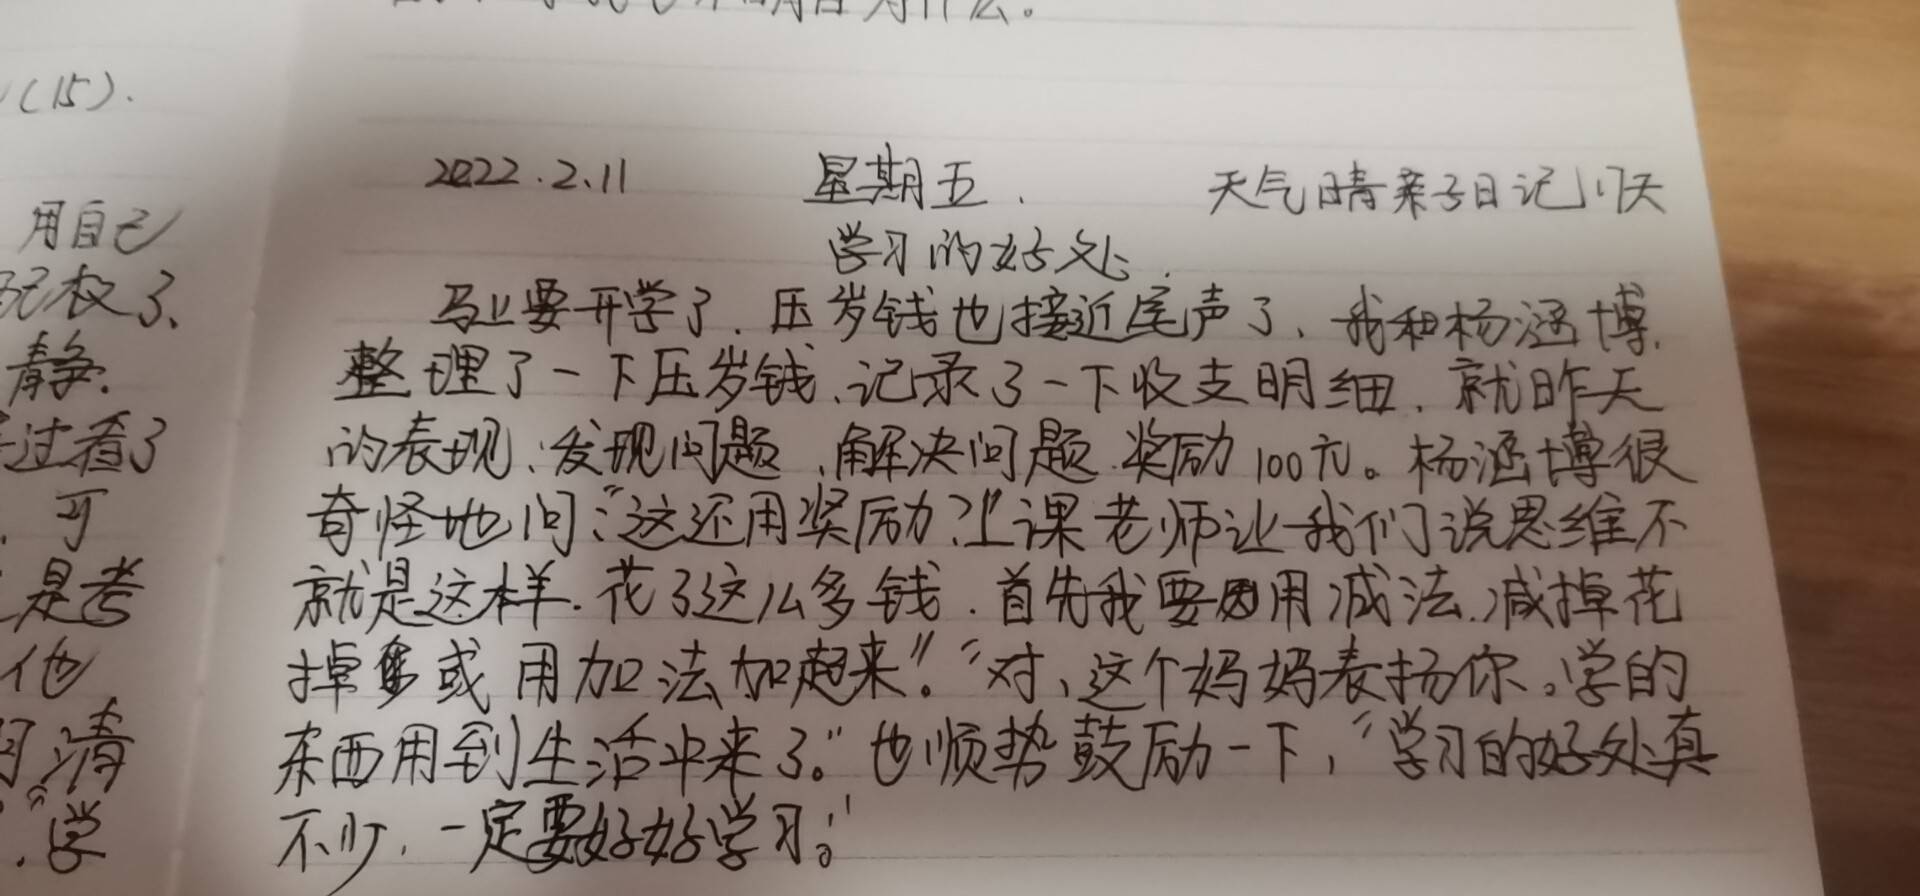 为什么。
(15).
用自己
极了、
静.
过看了
可
是考
他
清
"学
2022.2.11 星期五. 天气晴亲子日记17天
学习的好处.
马上要开学了.压岁钱也接近尾声了,我和杨涵博.
整理了一下压岁钱,记录了一下收支明细.就昨天
的表现,发现问题,解决问题.奖励100元。杨涵博很
奇怪地问:"这还用奖励?上课老师让我们说思维不
就是这样.花了这么多钱.首先我要用减法.减掉花
掉或用加法加起来"。"对,这个妈妈表扬你。学的
东西用到生活中来了。"也顺势鼓励一下,"学习的好处真
不少,一定要好好学习。"